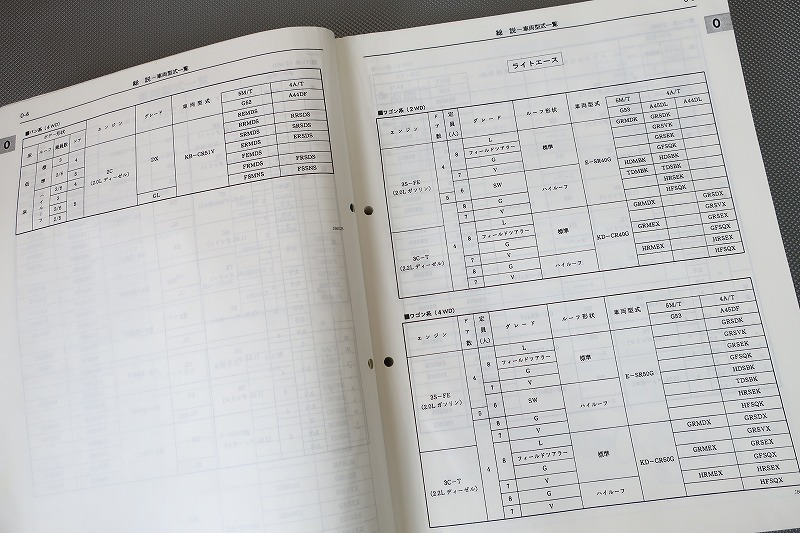 0-4
総 説－車両型式一覧
0
■バン系（4WD）
ボデー形状
床 ルーフ 乗員数 ドア
エンジン グレード 車両型式 5M/T 4A/T
G52 A44DF
2C
（2.0Lディーゼル）
DX
GL
KB－CR51V
REMDS
RRMDS RRSDS
SRMDS SRSDS
ERMDS ERSDS
FEMDS
FRMDS FRSDS
FSMNS FSSNS
総 説－車両型式一覧
0
ライトエース
■ワゴン系（2WD）
エンジン ドア数 定員（人） グレード ルーフ形状 車両型式 5M/T 4A/T
G53 A45DL A44DL
3S－FE
（2.0Lガソリン）
4 8 フィールドツアラー 標準 E－SR40G GRMDK GRSDK
G GRSVK
7 V GRSEK
GFSQK
5 6 SW ハイルーフ HDMBK HDSBK
TDMBK TDSBK
8 G HRSEK
7 V HFSQK
3C－T
（2.2Lディーゼル）
4 L 標準 KD－CR40G GRMDX GRSDX
8 フィールドツアラー GRSVX
G GRMEX GRSEX
7 V GFSQX
8 G ハイルーフ HRMEX HRSEX
7 V HFSQX
■ワゴン系（4WD）
エンジン ドア数 定員（人） グレード ルーフ形状 車両型式 5M/T 4A/T
G53 A45DF
3S－FE
（2.0Lガソリン）
4 8 L 標準 E－SR50G GRSDK
フィールドツアラー GRSVK
G GRSEK
7 V GFSQK
5 6 SW ハイルーフ HDSBK
TDSBK
8 G HRSEK
7 V HFSQK
3C－T
（2.2Lディーゼル）
4 8 L 標準 KD－CR50G GRMDX GRSDX
フィールドツアラー GRSVX
G GRMEX GRSEX
7 V GFSQX
8 G ハイルーフ HRMEX HRSEX
7 V HFSQX